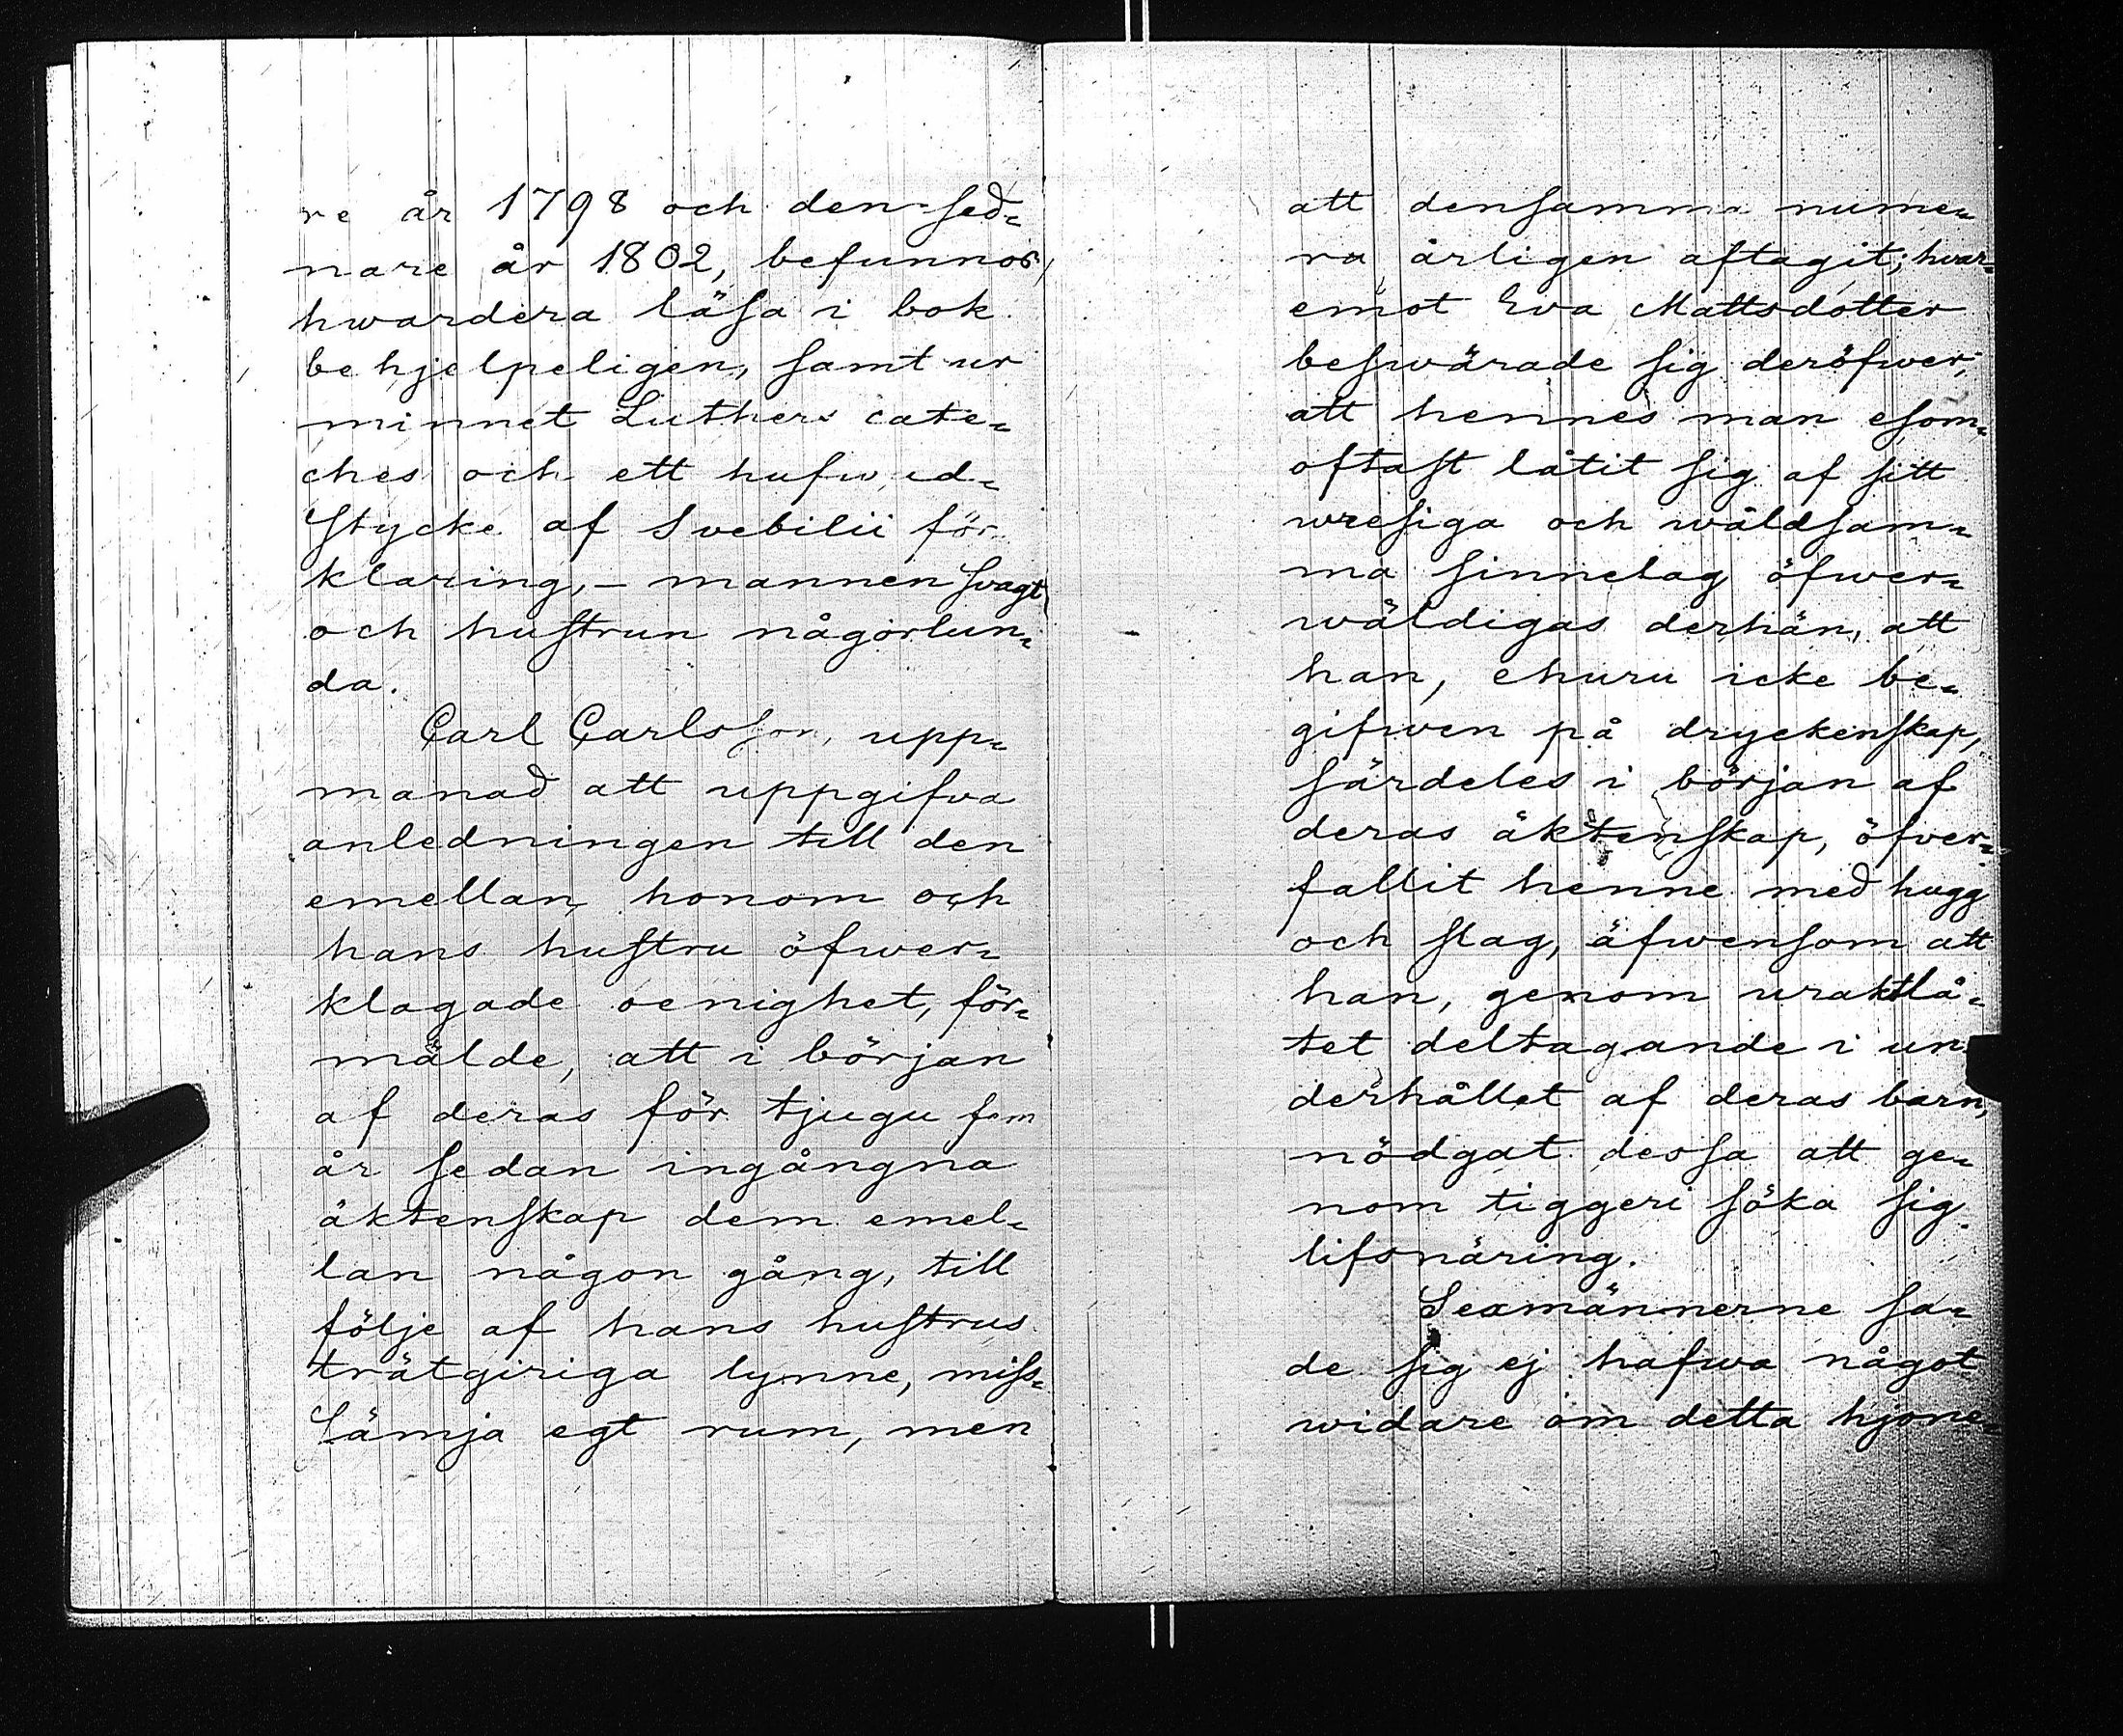 re år 1798 och den sed=
nare år 1802, befunnos
hwardera läsa i bok
behjelpeligen, samt ur
minnet Luthers cate=
ches och ett hufwud=
stycke af Svebilii för
klaring, – mannen svagt
och hustrun någorlun=
da.
Carl Carlsson, upp=
manad att uppgifva
anledningen till den
emellan honom och
hans hustru öfwer=
klagade oenighet, för=
mälde, att i början
af deras för tjugu fem
år sedan ingångna
äktenskap dem emel=
lan någon gång, till
följe af hans hustrus
trätgiriga lynne, miss=
sämja egt rum, men
att densamma nume=
ra årligen aftagit; hvar=
emot Eva Mattsdotter
beswärade sig deröfwer,
att hennes man esom=
oftast låtit sig af sitt
wresiga och wåldsam=
ma sinnelag öfwer=
wäldigas derhän, att
han, ehuru icke be=
gifwen på dryckenskap,
särdeles i början af
deras äktenskap, öfver=
fallit henne med hugg
och slag, äfwensom att
han, genom uraktlå=
tet deltagande i un
derhållet af deras barn,
nödgat dessa att ge=
nom tiggeri söka sig
lifsnäring.
Sexmännerne sa=
de sig ej hafwa något
widare om detta hjone=